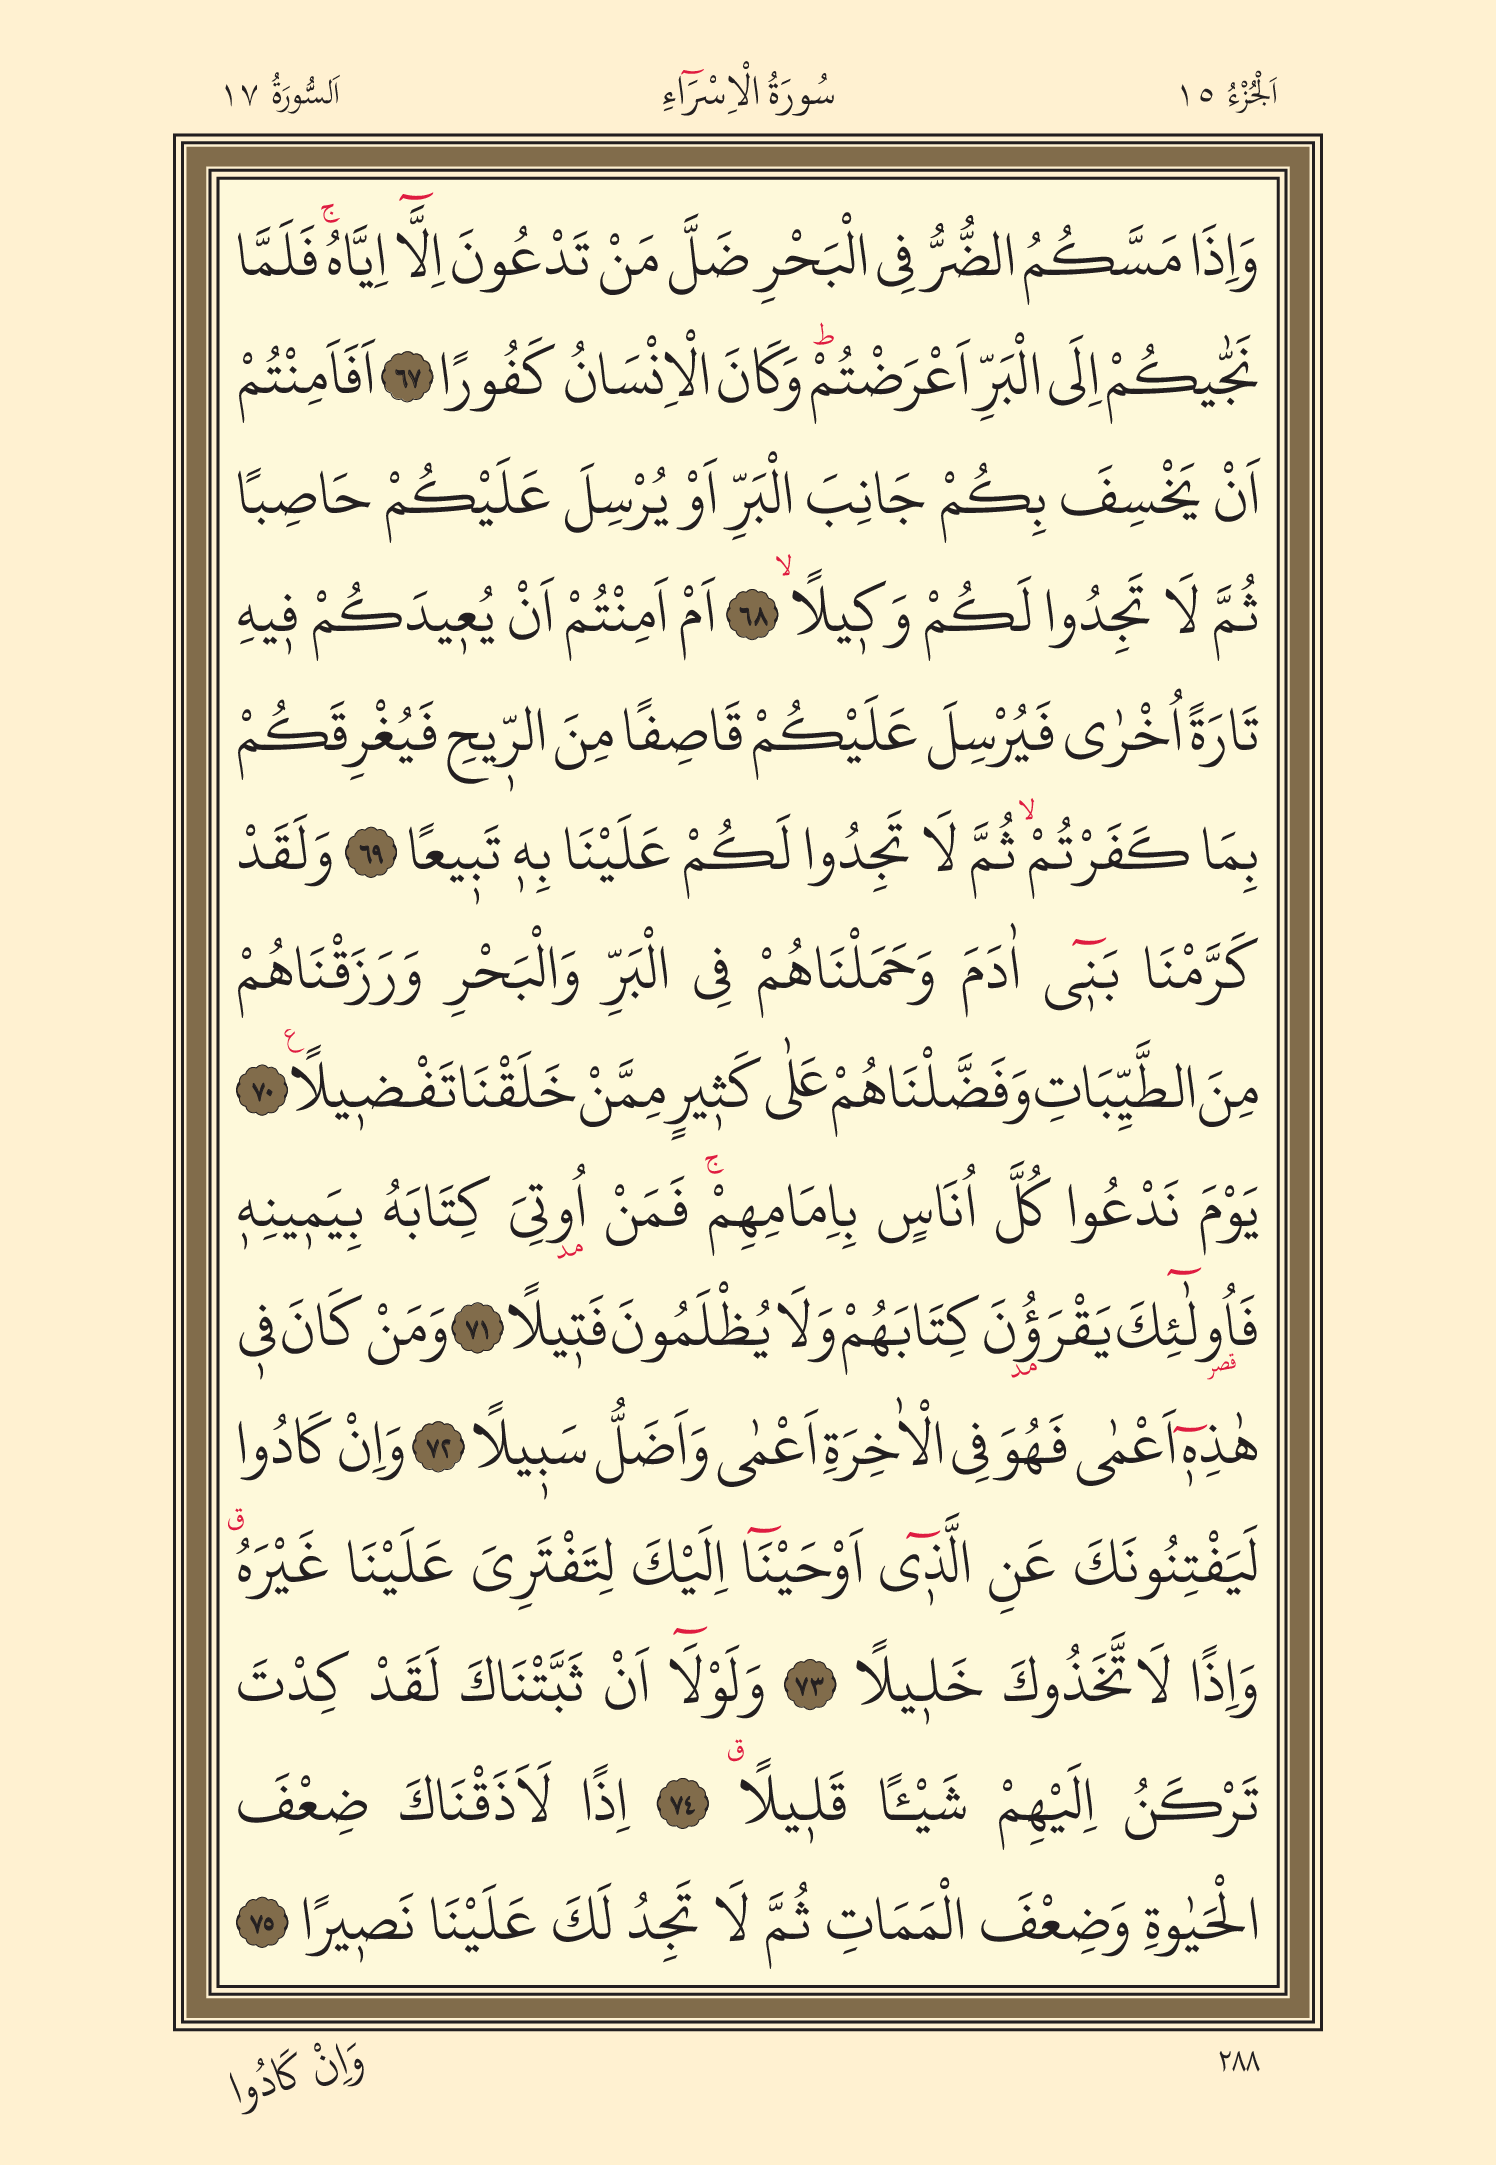 اَلْجُزْءُ ١٥ سُورَةُ الْاِسْرَٓاءِ اَلسُّورَةُ ١٧
وَاِذَا مَسَّكُمُ الضُّرُّ فِى الْبَحْرِ ضَلَّ مَنْ تَدْعُونَ اِلَّٓا اِيَّاهُۚ فَلَمَّا
نَجّٰيكُمْ اِلَى الْبَرِّ اَعْرَضْتُمْؕ وَكَانَ الْاِنْسَانُ كَفُورًا ٦٧ اَفَاَمِنْتُمْ
اَنْ يَخْسِفَ بِكُمْ جَانِبَ الْبَرِّ اَوْ يُرْسِلَ عَلَيْكُمْ حَاصِبًا
ثُمَّ لَا تَجِدُوا لَكُمْ وَكٖيلًاۙ ٦٨ اَمْ اَمِنْتُمْ اَنْ يُعٖيدَكُمْ فٖيهِ
تَارَةً اُخْرٰى فَيُرْسِلَ عَلَيْكُمْ قَاصِفًا مِنَ الرّٖيحِ فَيُغْرِقَكُمْ
بِمَا كَفَرْتُمْۙ ثُمَّ لَا تَجِدُوا لَكُمْ عَلَيْنَا بِهٖ تَبٖيعًا ٦٩ وَلَقَدْ
كَرَّمْنَا بَنٖٓى اٰدَمَ وَحَمَلْنَاهُمْ فِى الْبَرِّ وَالْبَحْرِ وَرَزَقْنَاهُمْ
مِنَ الطَّيِّبَاتِ وَفَضَّلْنَاهُمْ عَلٰى كَثٖيرٍ مِمَّنْ خَلَقْنَا تَفْضٖيلًا ع ٧٠
يَوْمَ نَدْعُوا كُلَّ اُنَاسٍ بِاِمَامِهِمْۚ فَمَنْ اُو۫تِىَ كِتَابَهُ بِيَمٖينِهٖ
فَاُو۬لٰٓئِكَ يَقْرَؤُ۫نَ كِتَابَهُمْ وَلَا يُظْلَمُونَ فَتٖيلًا ٧١ وَمَنْ كَانَ فٖى
هٰذِهٖٓ اَعْمٰى فَهُوَ فِى الْاٰخِرَةِ اَعْمٰى وَاَضَلُّ سَبٖيلًا ٧٢ وَاِنْ كَادُوا
لَيَفْتِنُونَكَ عَنِ الَّذٖٓى اَوْحَيْنَٓا اِلَيْكَ لِتَفْتَرِىَ عَلَيْنَا غَيْرَهُ ق
وَاِذًا لَاتَّخَذُوكَ خَلٖيلًا ٧٣ وَلَوْلَٓا اَنْ ثَبَّتْنَاكَ لَقَدْ كِدْتَ
تَرْكَنُ اِلَيْهِمْ شَيْـًٔا قَلٖيلًا ق ٧٤ اِذًا لَاَذَقْنَاكَ ضِعْفَ
الْحَيٰوةِ وَضِعْفَ الْمَمَاتِ ثُمَّ لَا تَجِدُ لَكَ عَلَيْنَا نَصٖيرًا ٧٥
٢٨٨ وَاِنْ كَادُوا